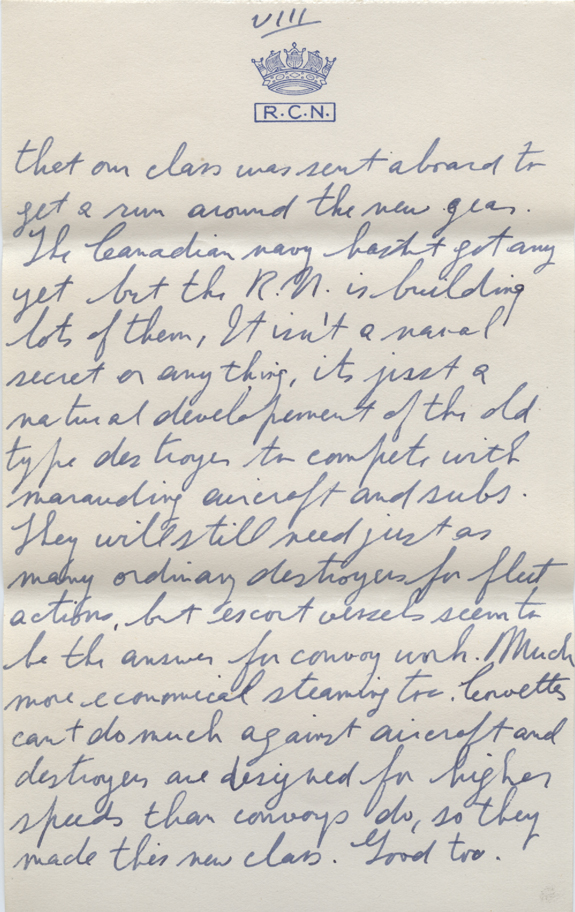 VIII
R.C.N.
that our class was sent aboard to
get a run around the new gear.
The Canadian navy hasn't got any
yet but the R.N. is building
lots of them, It isn't a naval
secret or anything, its just a
natural developement of the old
type destroyer to compete with
marauding aircraft and subs.
They will still need just as
many ordinary destroyers for fleet
actions, but escort vessels seem to
be the answer for convoy work. Much
more economical steaming too. Corvettes
can't do much against aircraft and
destroyers are designed for higher
speeds than convoys do, so they
made this new class. Good too.